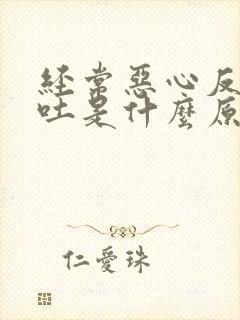 經常惡心反
吐是什麼原
仁愛珠